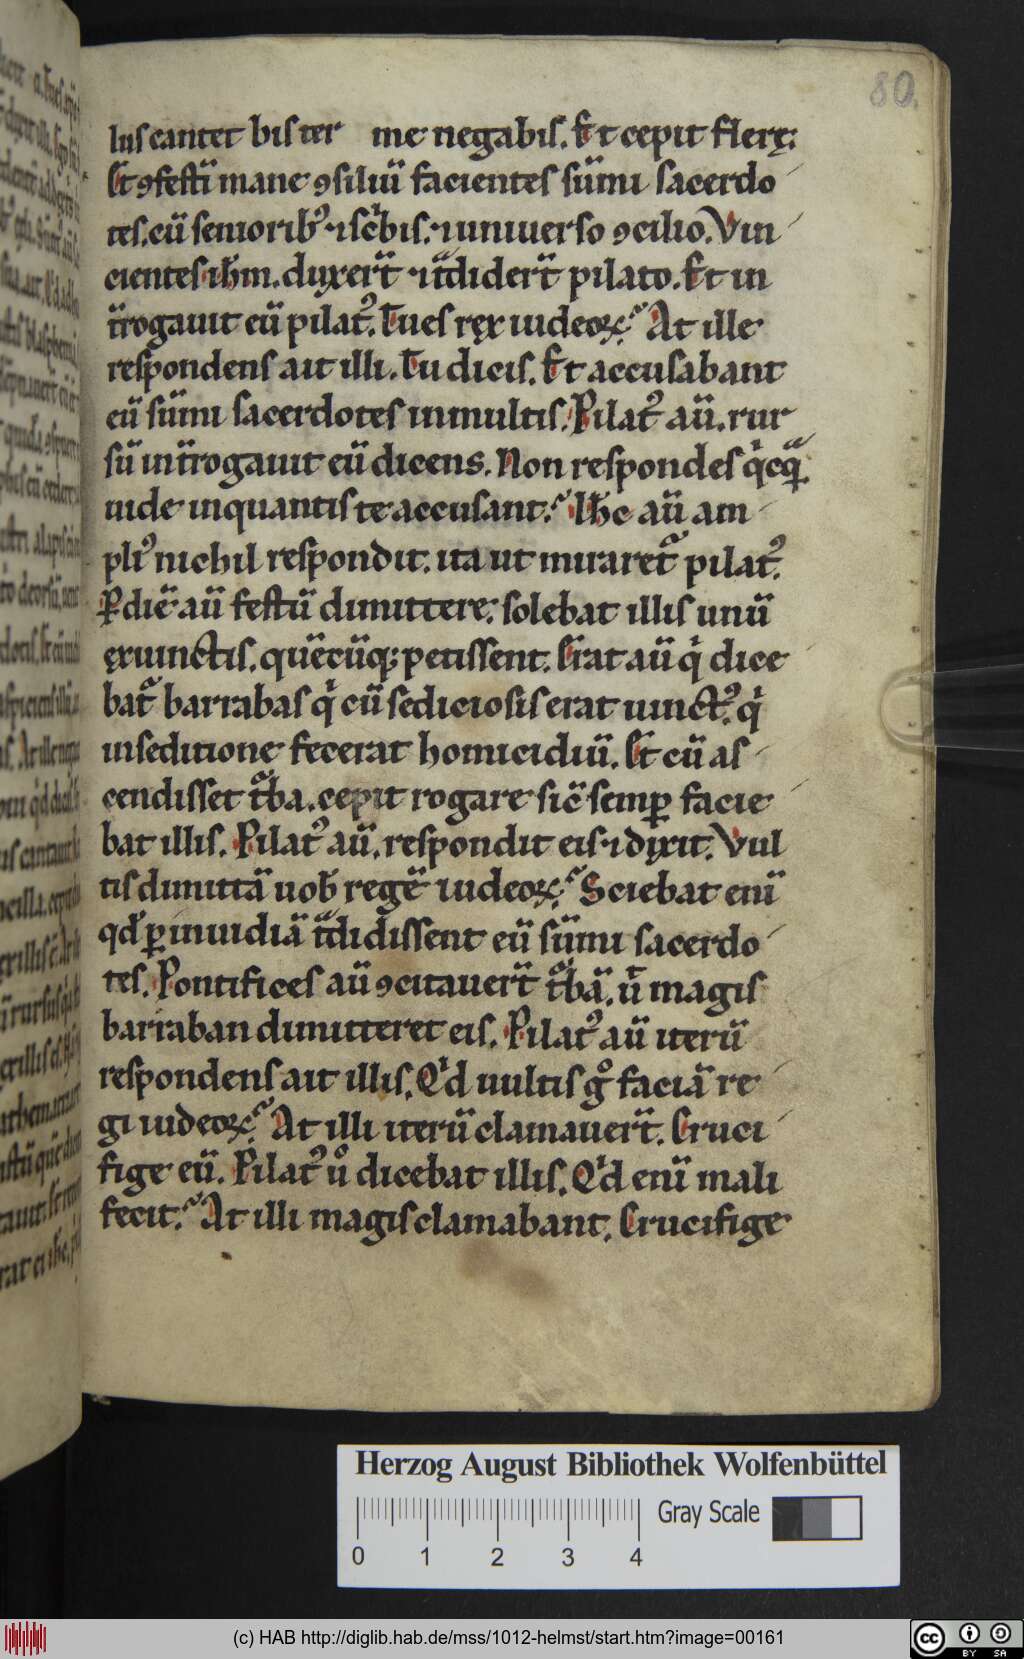 80.
lus cantet bis ter me negabis. Et cepit flerę:
Et ꝯfestĩ mane ꝯsiliũ facientes sũmi sacerdo
tes. cũ seniorib᷒ ⁊ scͥbis. ⁊ uniuerso ꝯcilio. Vin
cientes ihm̅. duxer̃t ⁊ tͣdider̃t pilato. Et in
t̃rogauit eũ pilat᷒. Tu es ręx iudeoꝝ? At ille
respondens ait illi. Tu dicis. Et accusabant
eũ sũmi sacerdotes in multis. Pilat᷒ aũ. rur
sũ int̃rogauit eũ dicens. Non respondes qͥcqͣ̃.
uide in quantis te accusant? Ihc̅ aũ am
pli᷒ nichil respondit. ita ut miraret᷑ pilat᷒.
P̲ diẽ aũ festũ dimittere. solebat illis unũ
ęx uinctis. quẽcũq; petissent. Erat aũ qͥ dice
bat᷑ barrabas qͥ cũ sediciosis erat uinct᷒. qͥ
in seditione fecerat homicidiũ. Et cũ as
cendisset t᷑ba. cepit rogare sic̃ semꝑ facie
bat illis. Pilat᷒ aũ. respondit eis ⁊ dixit. Vul
tis dimittã uob̅ regẽ iudeoꝝ? Sciebat enĩ
qd̅ ꝑ inuidiã tͣdidissent eũ sũmi sacerdo
tes. Pontifices aũ ꝯcitauer̃t t᷑bã. ut̅ magis
barraban dimitteret eis. Pilat᷒ aũ iterũ
respondens ait illis. Qͥd uultis gͦ faciã re
gi iudeoꝝ? At illi iterũ clamauer̃t. Cruci
fige eũ. Pilat᷒ uͦ dicebat illis. Qͥd enĩ mali
fecit? At illi magis clamabant. Crucifige
Herzog August Bibliothek Wolfenbüttel
Gray Scale
0 1 2 3 4
(c) HAB http://diglib.hab.de/mss/1012-helmst/start.htm?image=00161
cc BY SA